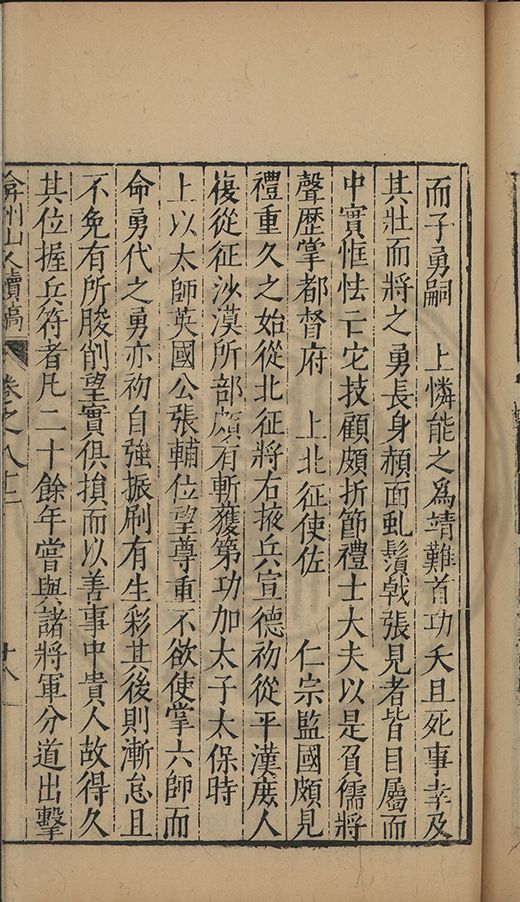 而子勇嗣　上憐能之爲靖難首功夭且死事幸及
其壯而將之勇長身頳面虬鬚戟張見者皆目屬而
中實恇怯亡它技顧頗折節禮士大夫以是負儒將
聲歷掌都督府　上北征使佐　仁宗監國頗見
禮重久之始從北征將右掖兵宣德初從平漢庶人
復從征沙漠所部頗有斬獲第功加太子太保時
上以太師英國公張輔位望尊重不欲使掌六師而
命勇代之勇亦初自強振刷有生彩其後則漸怠且
不免有所朘削望實俱損而以善事中貴人故得久
其位握兵符者凡二十餘年嘗與諸將軍分道出擊
弇州山人續稿　卷之八十二　十八